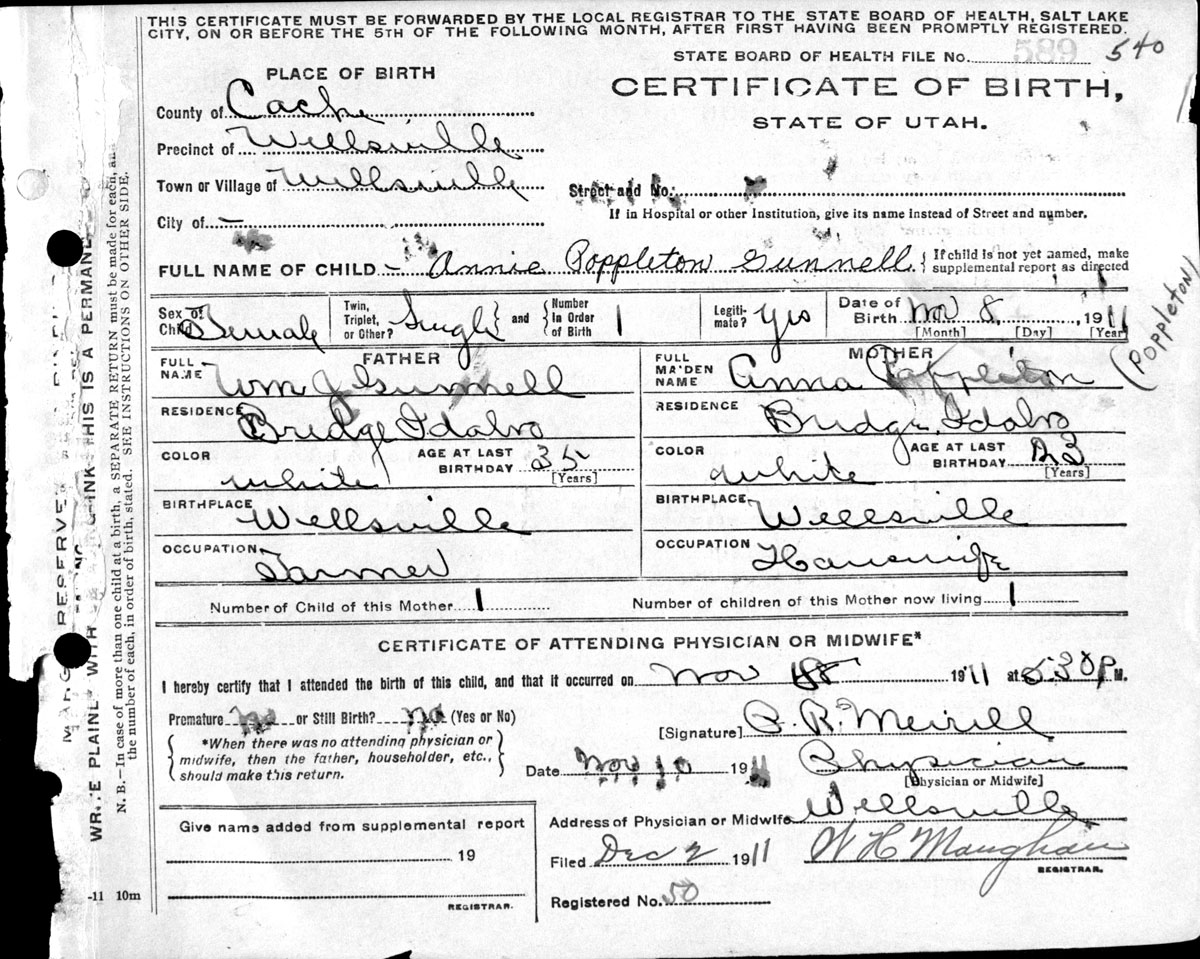 THIS CERTIFICATE MUST BE FORWARDED BY THE LOCAL REGISTRAR TO THE STATE BOARD OF HEALTH, SALT LAKE
CITY, ON OR BEFORE THE 5TH OF THE FOLLOWING MONTH, AFTER FIRST HAVING BEEN PROMPTLY REGISTERED.
STATE BOARD OF HEALTH FILE No. 589 540
PLACE OF BIRTH
CERTIFICATE OF BIRTH,
STATE OF UTAH.
County of Cache
Precinct of Wellsville
Town or Village of Wellsville
Street and No.
City of —
If in Hospital or other Institution, give its name instead of Street and number.
FULL NAME OF CHILD – Annie Poppleton Gunnell { If child is not yet named, make
supplemental report as directed
Sex of Child Female Twin, Triplet, or Other? Single and { Number In Order of Birth 1 Legiti-mate? Yes Date of Birth Nov 8, 1911
[Month] [Day] [Year]
(POPPLETON)
FATHER
MOTHER
FULL NAME Wm J Gunnell
FULL MAIDEN NAME Anna Poppleton
RESIDENCE Bridge Idaho
RESIDENCE Bridge Idaho
COLOR white AGE AT LAST BIRTHDAY 35 [Years]
COLOR white AGE AT LAST BIRTHDAY 23 [Years]
BIRTHPLACE Wellsville
BIRTHPLACE Wellsville
OCCUPATION Farmer
OCCUPATION Housewife
Number of Child of this Mother 1 Number of children of this Mother now living 1
CERTIFICATE OF ATTENDING PHYSICIAN OR MIDWIFE*
I hereby certify that I attended the birth of this child, and that it occurred on Nov 1911 at 530 P. M.
Premature no or Still Birth? no (Yes or No)
*When there was no attending physician or
midwife, then the father, householder, etc.,
should make this return.
[Signature] Merrill
Date Nov 10 1911 Physician
[Physician or Midwife]
Address of Physician or Midwife Wellsville
Give name added from supplemental report
19
REGISTRAR.
Filed Dec 2 1911 W H Maughan
REGISTRAR.
Registered No. 50
-11 10m
N. B.—In case of more than one child at a birth, a SEPARATE RETURN must be made for each, an
the number of each, in order of birth, stated. SEE INSTRUCTIONS ON OTHER SIDE.
THIS IS A PERMANE